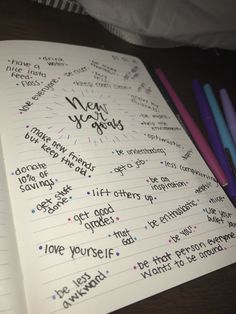 drink
water
have a
nice insta
feed
floss
love everyone
be more
keep room clean
New
year
goals
optimistic
be understanding
get a job
less complaining
make new friends
but keep the old
donate
10% of
savings
get stuff
done
lift others up
be an
inspiration
get good
grades
be enthusiastic
trust
God
be YOU
love yourself
be that person everyone
wants to be around
be less
awkward